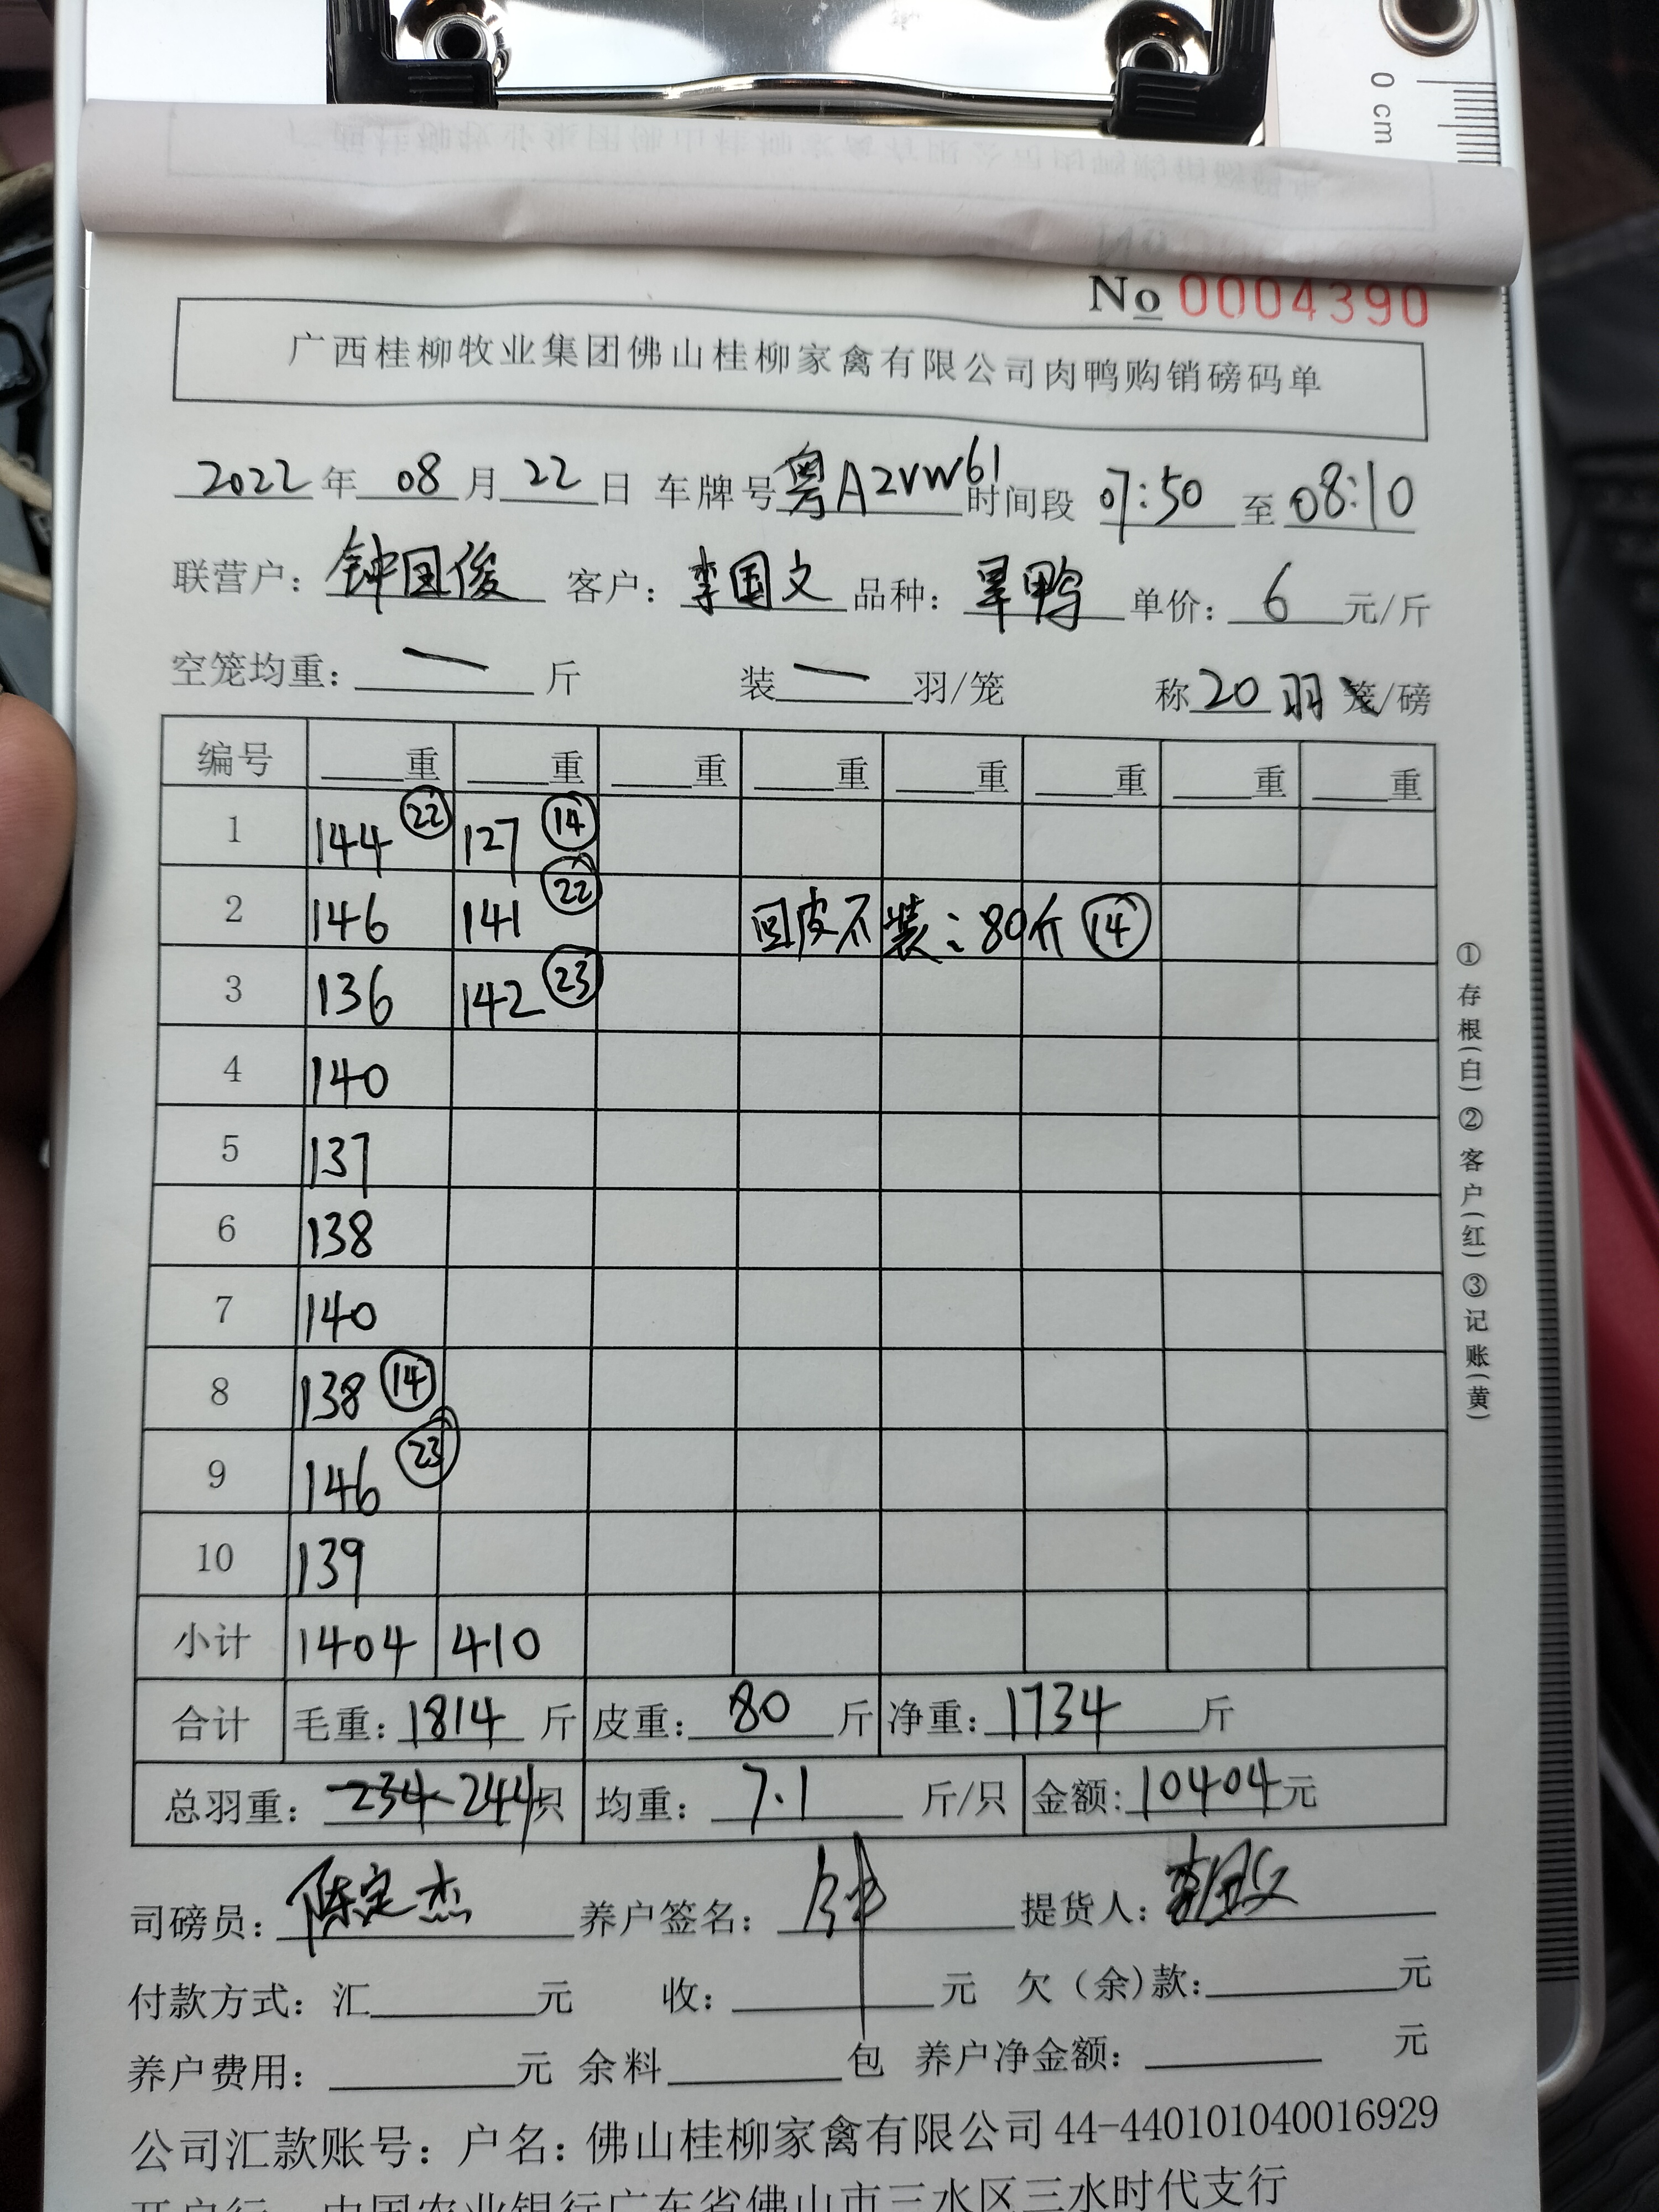 0 cm
No 0004390
广西桂柳牧业集团佛山桂柳家禽有限公司肉鸭购销磅码单
2022年08月22日 车牌号粤A2VW61时间段 07:50 至 08:10
联营户：钟国俊 客户：李国文 品种：旱鸭 单价：6元/斤
空笼均重：一斤 装一羽/笼 称20羽笼/磅
编号 重 重 重 重 重 重 重 重
1 144 22 127 14
2 146 141 22 回皮不装：80斤 14
3 136 142 23
4 140
5 137
6 138
7 140
8 138 14
9 146 23
10 139
小计 1404 410
合计 毛重：1814斤 皮重：80斤 净重：1734斤
总羽重：234 244只 均重：7.1斤/只 金额：10404元
司磅员：陈定杰 养户签名：钟 提货人：李国文
付款方式：汇 元 收： 元 欠（余）款： 元
养户费用： 元 余料 包 养户净金额： 元
公司汇款账号：户名：佛山桂柳家禽有限公司44-440101040016929
开户行：中国农业银行广东省佛山市三水区三水时代支行
①存根(白)②客户(红)③记账(黄)